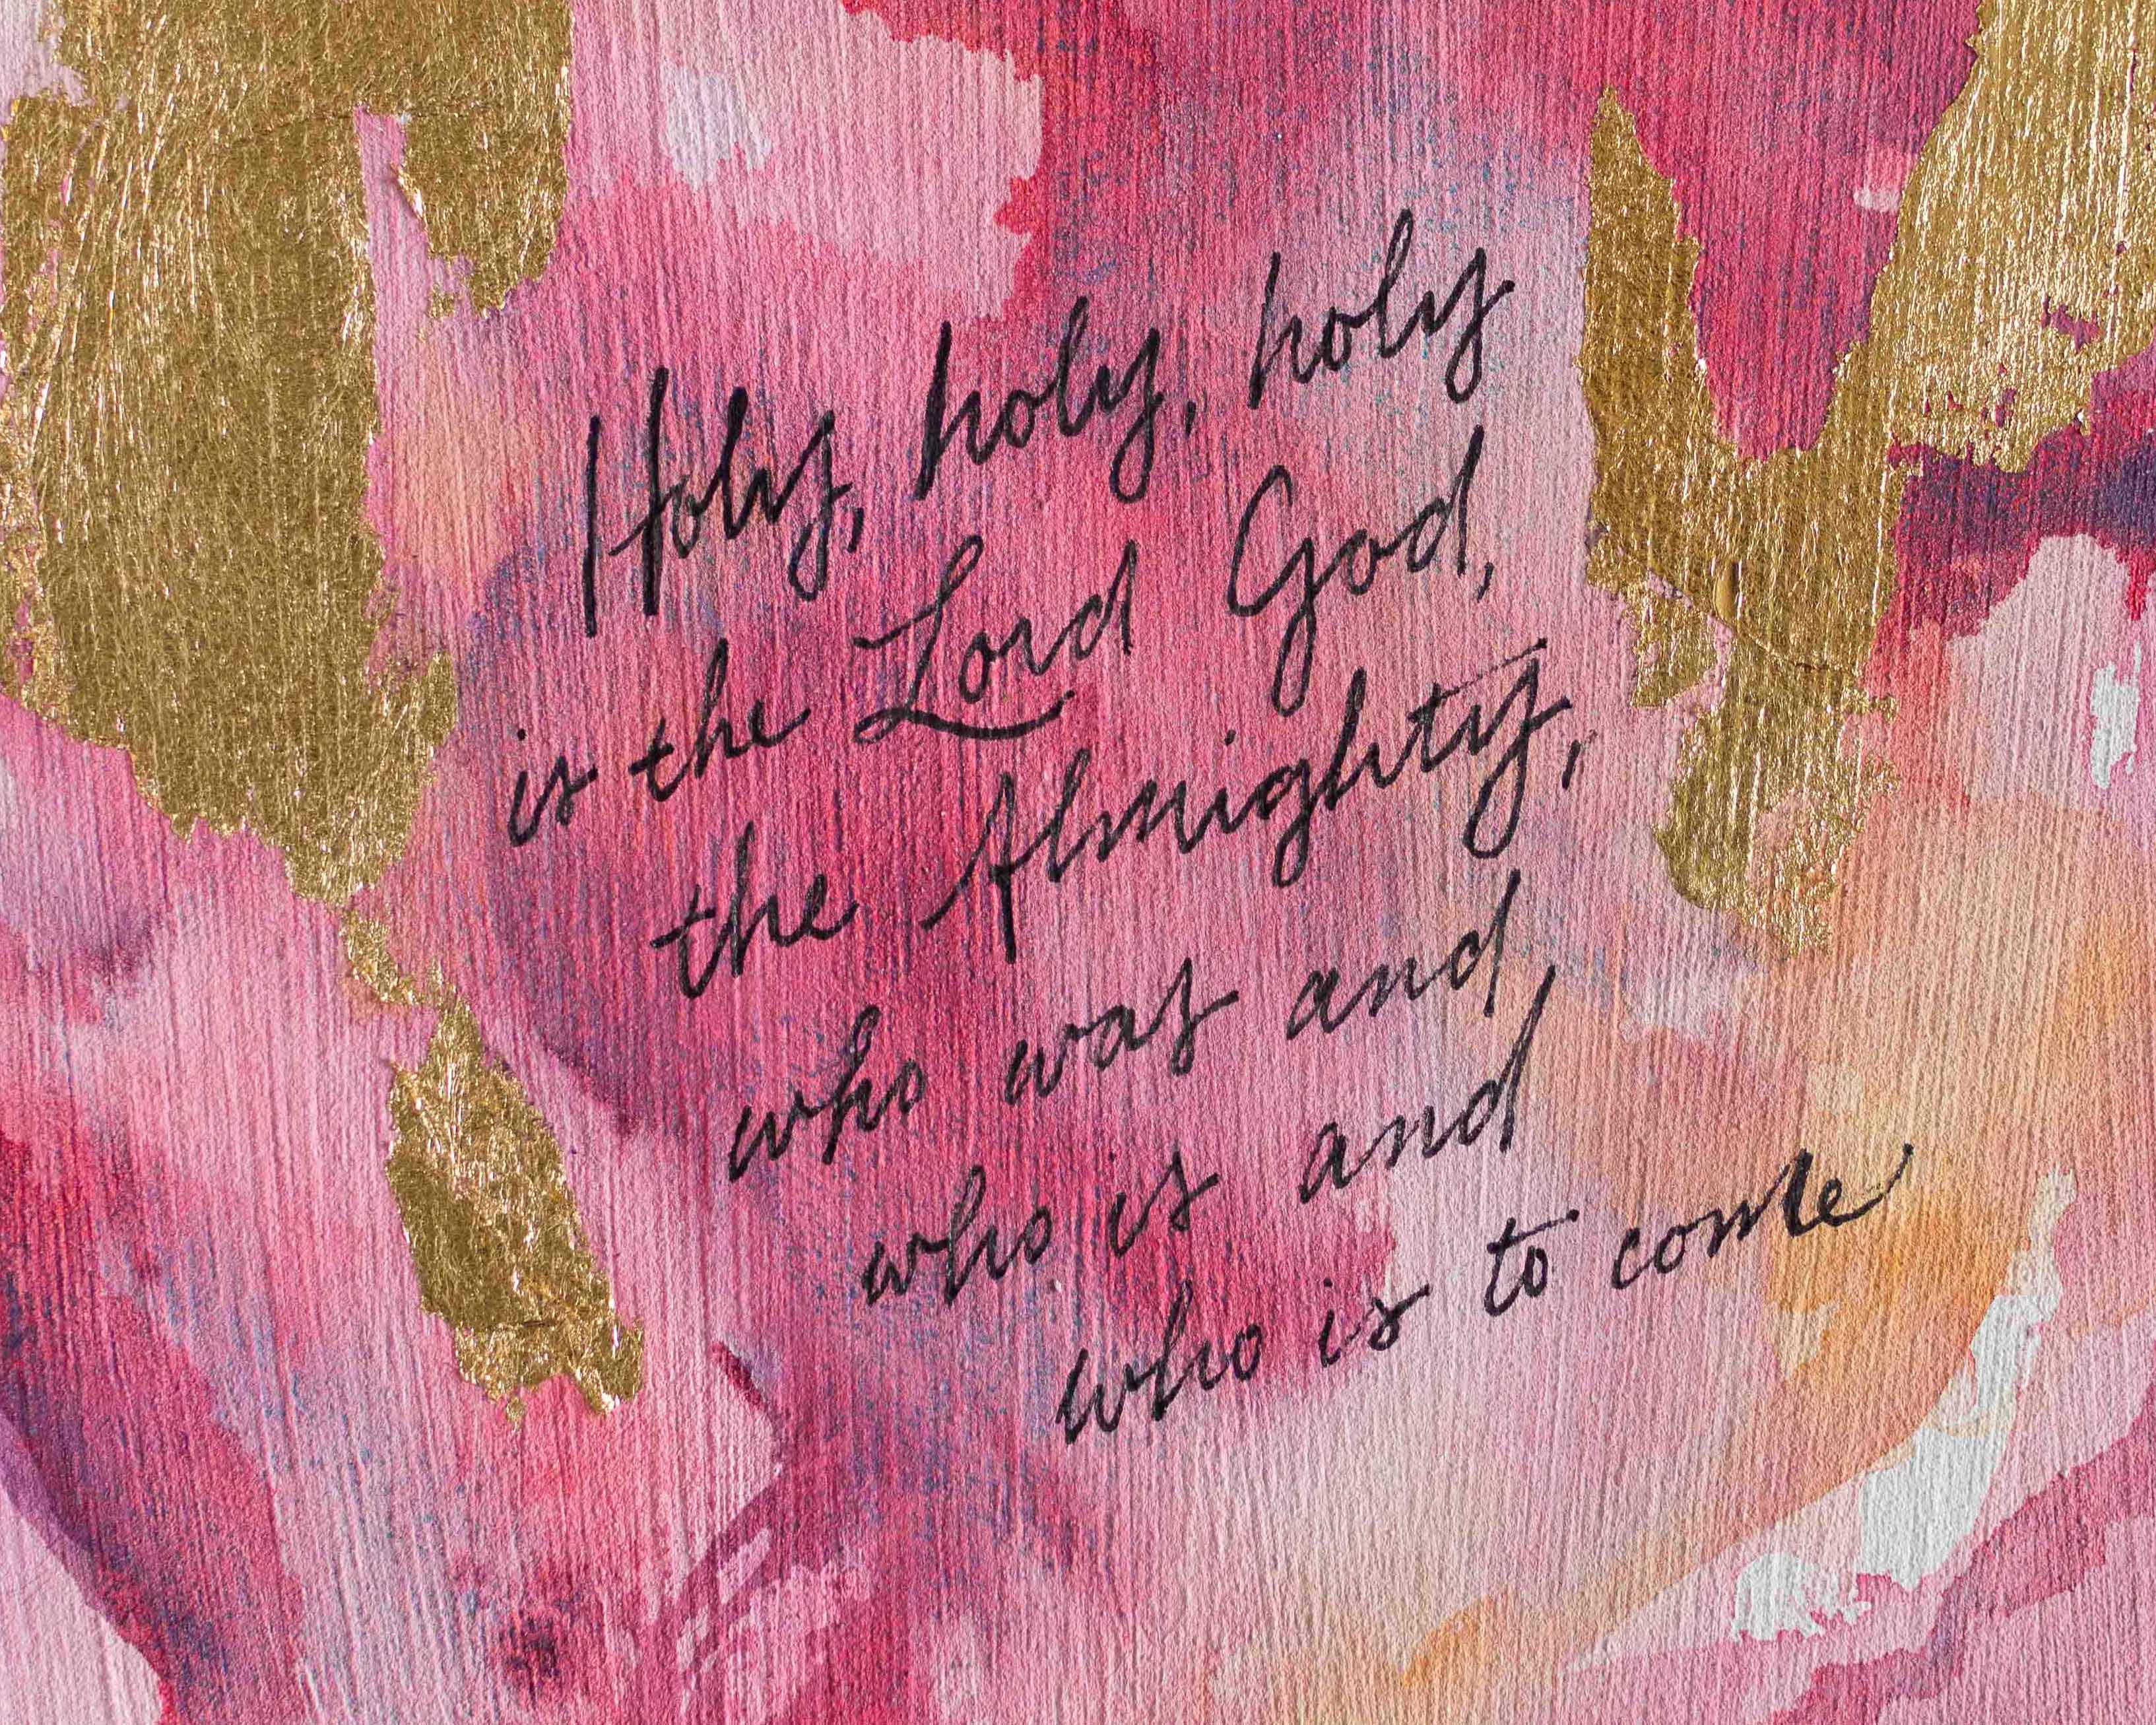 Holy, holy, holy
is the Lord God,
the Almighty,
who was and
who is and
who is to come